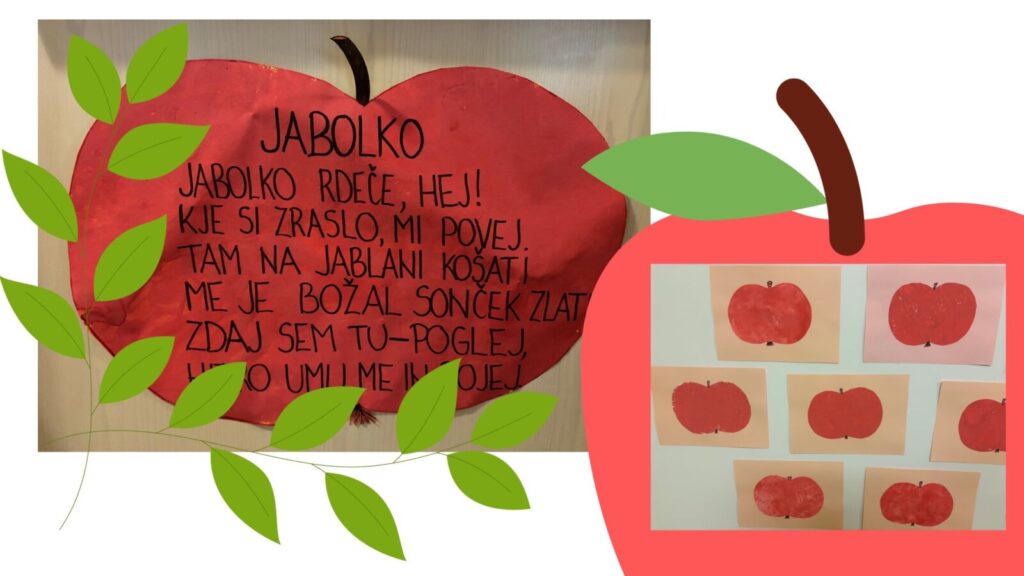 JABOLKO
JABOLKO RDEČE, HEJ!
KJE SI ZRASLO, MI POVEJ.
TAM NA JABLANI KOŠATI
ME JE BOŽAL SONČEK ZLAT
ZDAJ SEM TU-POGLEJ,
UMIJ ME IN